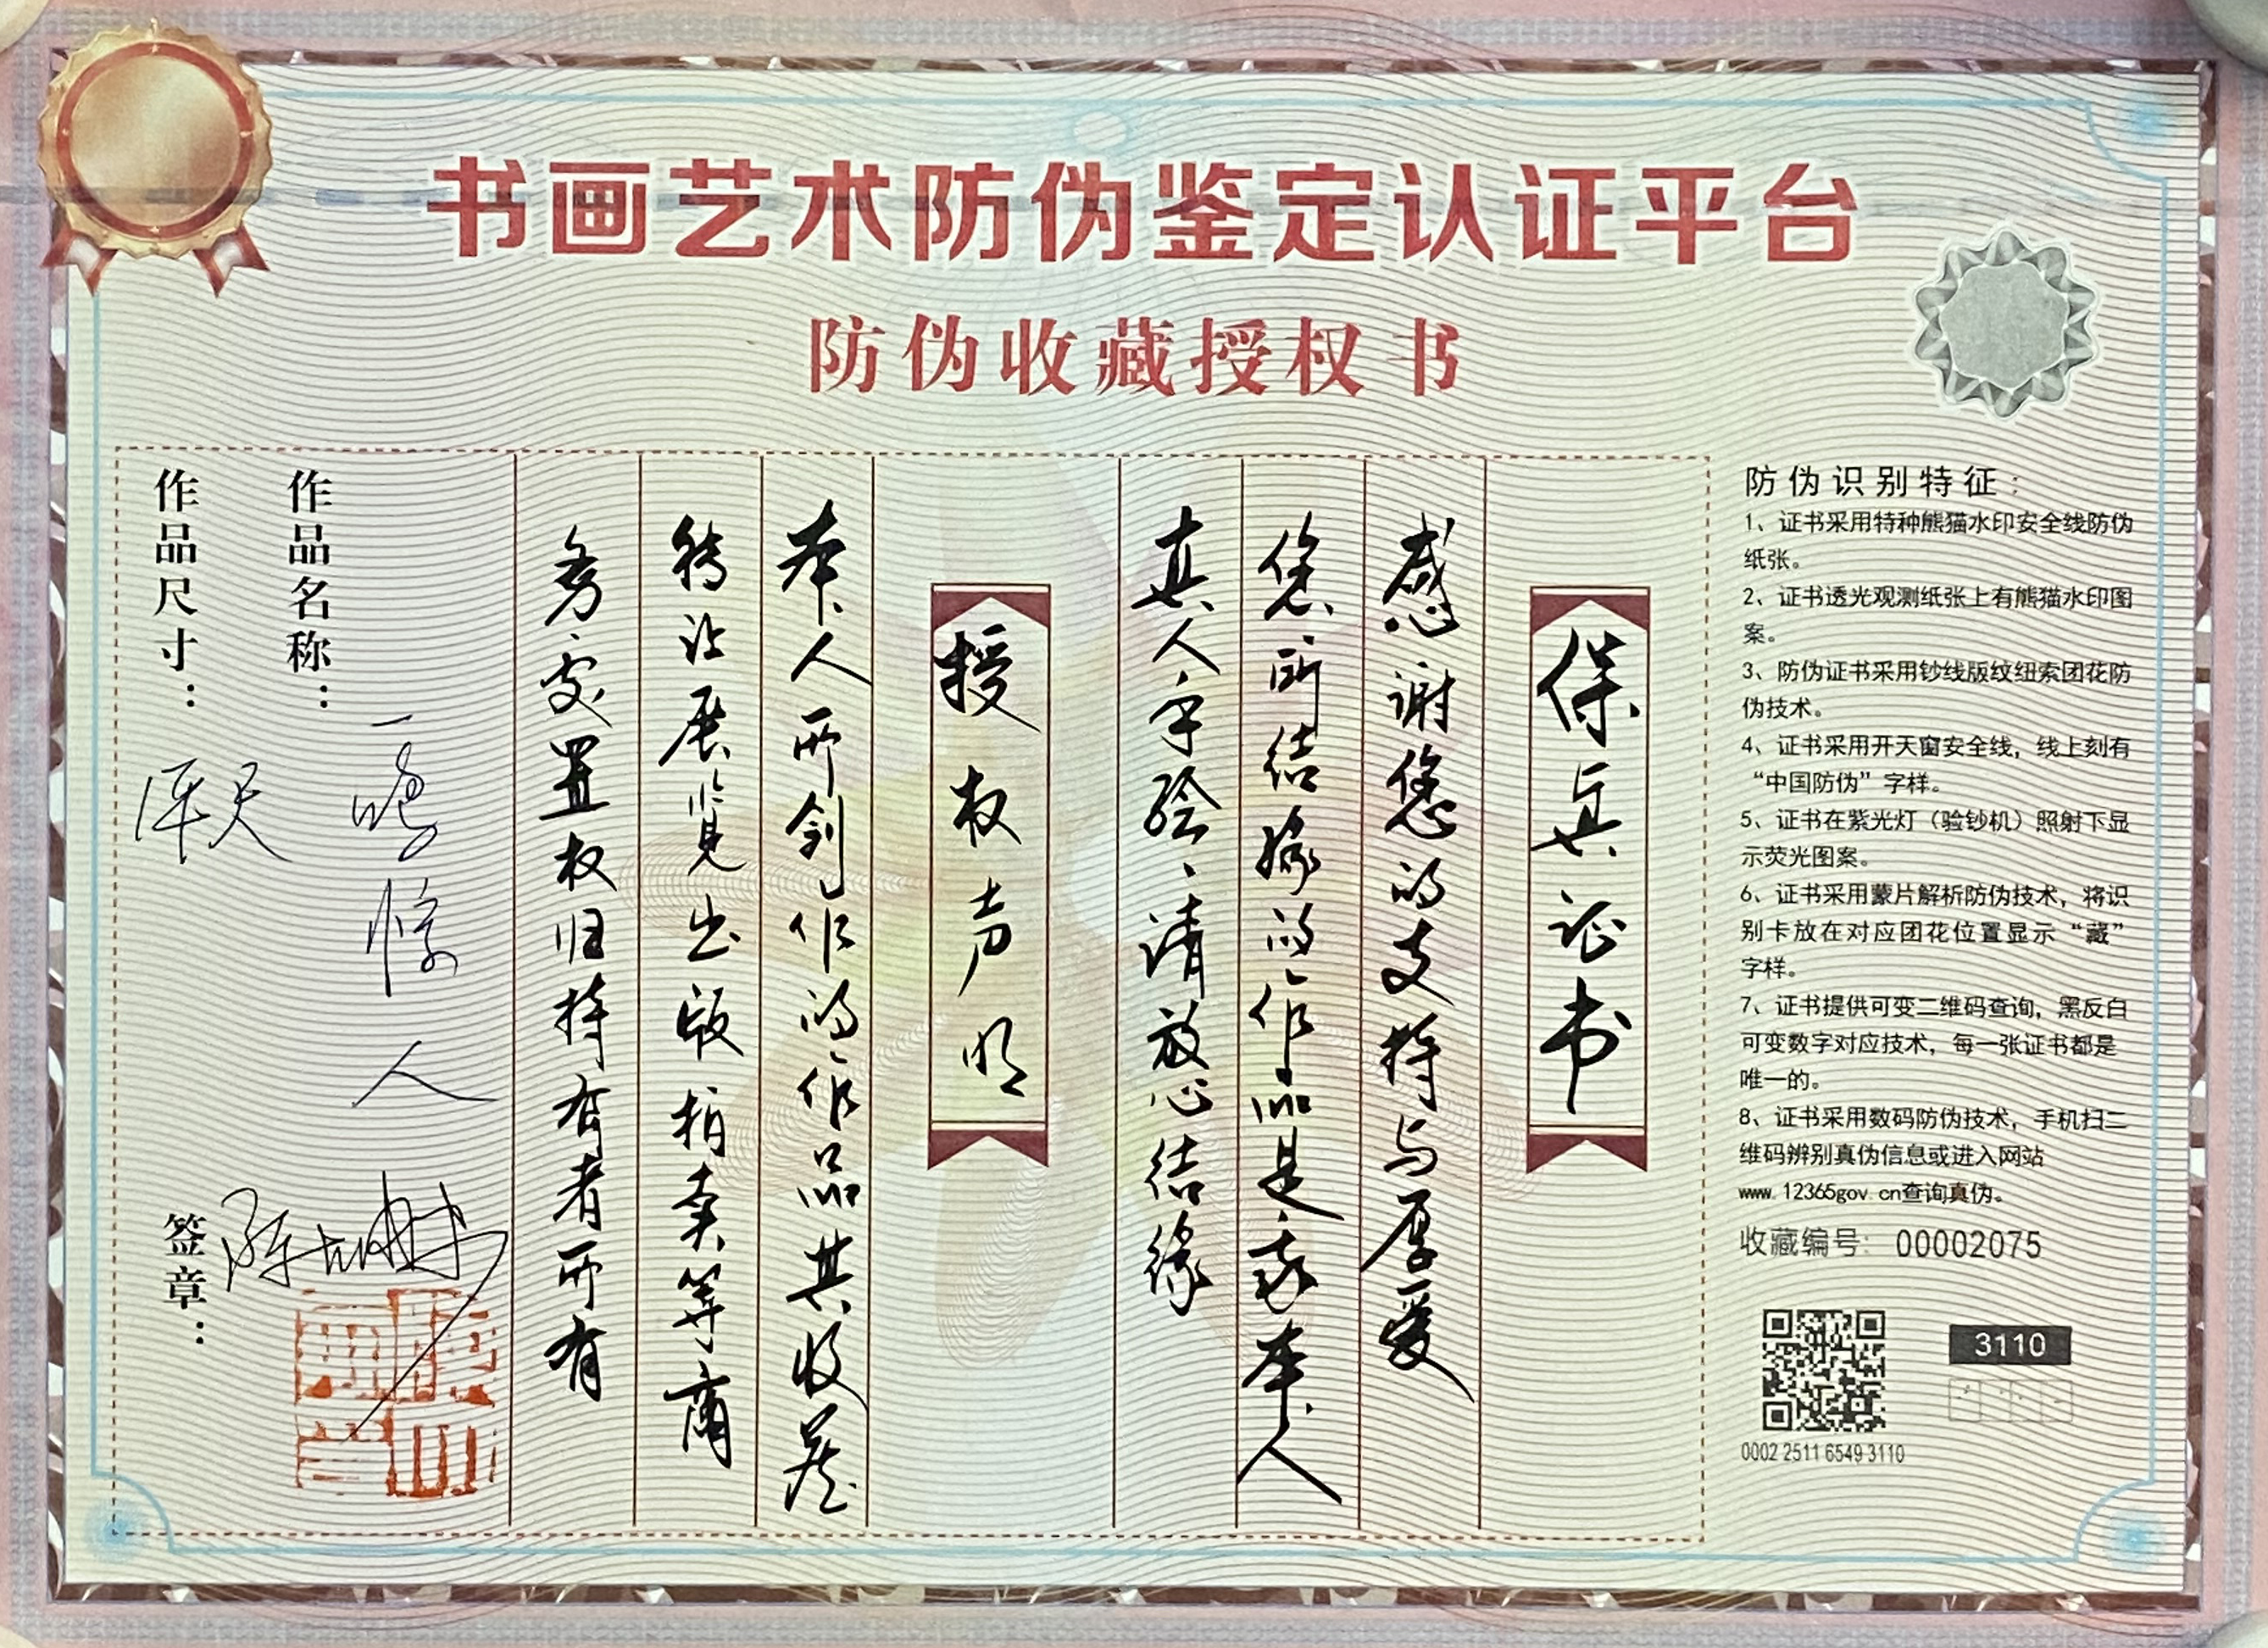 书画艺术防伪鉴定认证平台
防伪收藏授权书
防伪识别特征：
1、证书采用特种熊猫水印安全线防伪
纸张。
2、证书透光观测纸张上有熊猫水印图
案。
3、防伪证书采用钞线版纹纽索团花防
伪技术。
4、证书采用开天窗安全线，线上刻有
“中国防伪”字样。
5、证书在紫光灯（验钞机）照射下显
示荧光图案。
6、证书采用蒙片解析防伪技术，将识
别卡放在对应团花位置显示“藏”
字样。
7、证书提供可变二维码查询，黑反白
可变数字对应技术，每一张证书都是
唯一的。
8、证书采用数码防伪技术，手机扫二
维码辨别真伪信息或进入网站
www.12365gov.cn查询真伪。
收藏编号：00002075
3110
0002 2511 6549 3110
保真证书
感谢您的支持与厚爱
您所结缘的作品是我本人
真人手绘、请放心结缘
授权声明
本人所创作的作品其收藏
转让展览出版拍卖等商
务处置权归持有者所有
作品名称：一鸣惊人
作品尺寸：
签章：